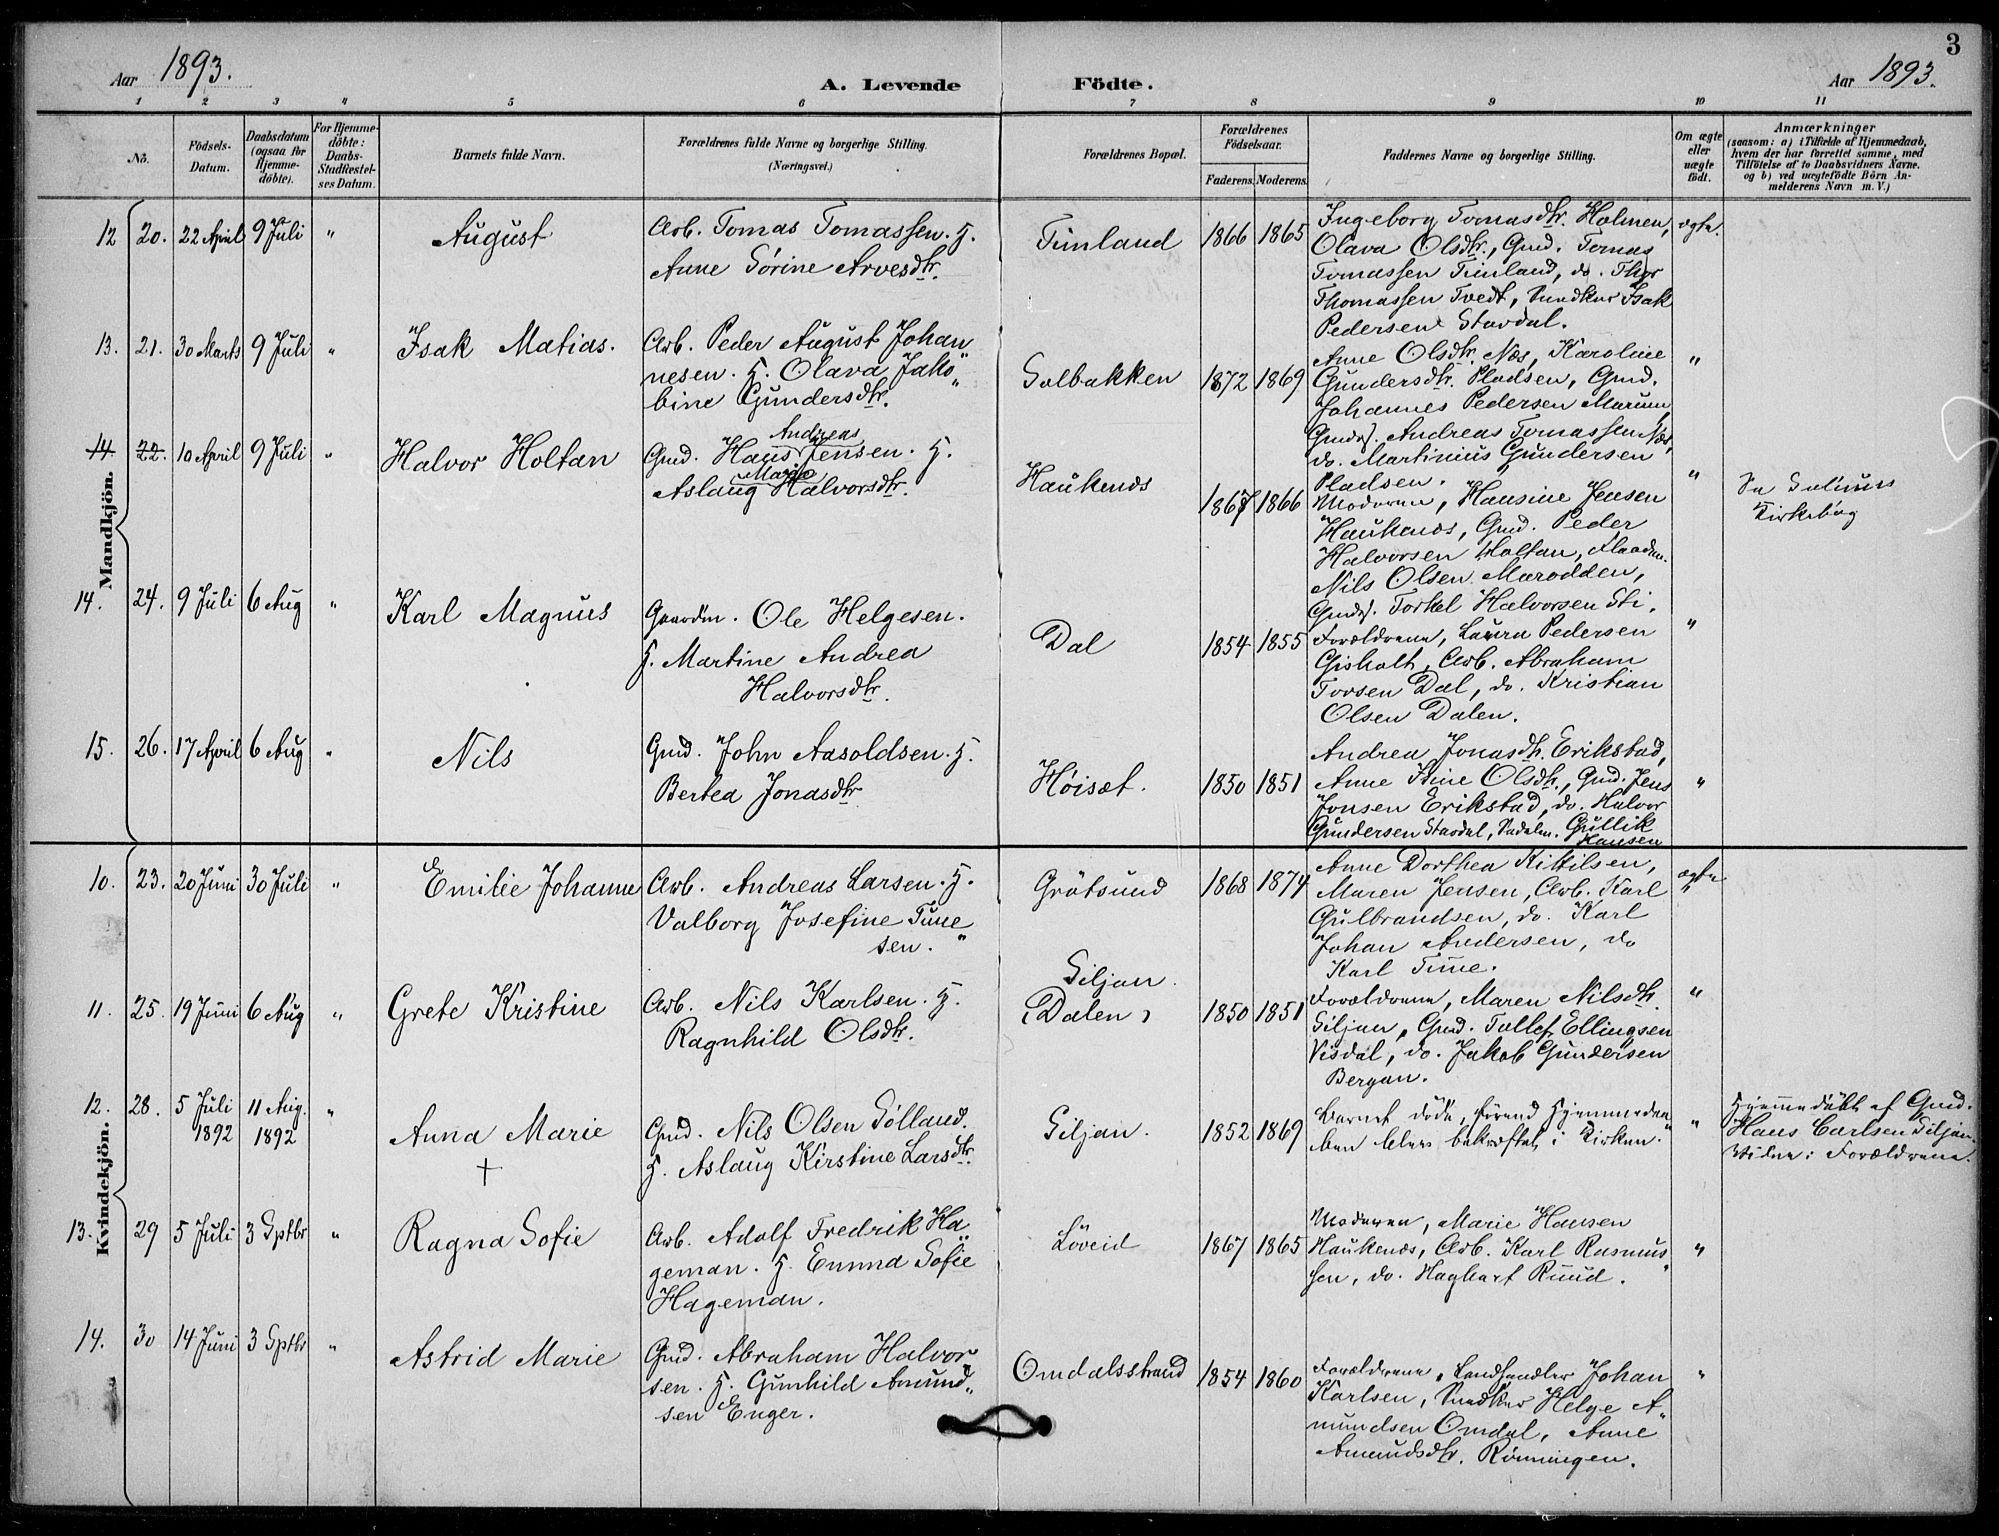 3
Aar 1893.
A. Levende Födte.
Aar 1893.
1 2 3 4 5 6 7 8 9 10 11
No.
Födsels-
Datum.
Daabsdatum
(ogsaa for
Hjemme-
döbte).
For Hjemme-
döbte:
Daabs-
Stadfæstel-
ses Datum.
Barnets fulde Navn.
Forældrenes fulde Navne og borgerlige Stilling.
(Næringsvei.)
Forældrenes Bopæl.
Forældrenes
Födselsaar.
Faderens. Moderens.
Faddernes Navne og borgerlige Stilling.
Om ægte
eller
uægte
födt.
Anmærkninger
(saasom: a) i Tilfælde af Hjemmedaab,
hvem der har forrettet samme, med
Tilföielse af to Daabsvidners Navne.
og b) ved uægtefödte Börn An-
melderens Navn m. V.)
Mandkjön.
12 20. 22 April 9 Juli " August
Arb. Tomas Tomassen. H.
Anne Sørine Arvesdtr.
Timland 1866 1865
Ingeborg Tomasdtr. Holmen,
Olava Olsdtr., Gmd. Tomas
Tomassen Timland, do. Thor
Thomassen Tvedt, Ungkar Isak
Pedersen Stavdal.
ægte.
13. 21. 30 Marts 9 Juli " Isak Matias.
Arb. Peder August Johan
nesen. H. Olava Jako"
bine Gundersdtr.
Solbakken 1872 1869
Anne Olsdtr. Næs, Karoline
Gundersdtr. Pladsen, Gmd.
Johannes Pedersen Marum,
Gmdsf. Andreas Tomassen Næs,
do. Martinius Gundersen
Pladsen.
"
14. 22. 10 April 9 Juli " Halvor Holtan
Andreas
Gmd. Hans Jensen. H.
Marie
Aslaug Halvorsdtr.
Haukenæs 1867 1866
Moderen, Hansine Jensen
Haukenæs, Gmd. Peder
Halvorsen Holtan,
Nils Olsen Marodden,
Gmdsf. Torkel Halvorsen Sti.
"
Se Solums
Kirkebog
14. 24. 9 Juli 6 Aug " Karl Magnus
Gaardm. Ole Helgesen.
H. Martine Andrea
Halvorsdtr.
Dal 1854 1855
Forældrene, Laura Pedersen
Gisholt, Arb. Abraham
Torsen Dal, do. Kristian
Olsen Dalen.
"
15. 26. 17 April 6 Aug " Nils
Gmd. John Aasoldsen. H.
Bertea Jonasdtr
Høisæt. 1850 1851
Andrea Jonasdtr. Erikstad,
Anne Stine Olsdtr., Gmd. Jens
Jonsen Erikstad, do. Halvor
Gundersen Stavdal, Gullik
Hansen
"
Kvindekjön.
10. 23. 20 Juni 30 Juli " Emilie Johanne
Arb. Andreas Larsen. H.
Valborg Josefine Tune"
sen.
Grøtsund 1868 1874
Anne Dorthea Kittilsen,
Maren Jensen, Arb. Karl
Gulbrandsen, do. Karl
Johan Andersen, do
Karl Tune.
ægte
11. 25. 19 Juni 6 Aug " Grete Kristine
Arb. Nils Karlsen. H.
Ragnhild Olsdtr.
Siljan.
(Dalen) 1850 1851
Forældrene, Maren Nilsdtr.
Siljan, Gmd. Tollef Ellingsen
Visdal, do. Jakob Gundersen
Bergan.
"
12. 28. 5 Juli 1892 11 Aug. 1892 " Anna Marie
+
Gmd. Nils Olsen Sølland.
H. Aslaug Kirstine Larsdtr.
Siljan. 1852 1869
Barnet døde, førend Hjemmedaa"
ben blev bekræftet i Kirken.
"
Hjemmedøbt af Gmd.
Hans Carlsen Siljan.
Vidner: Forældrene.
13. 29 5 Juli 3 Sptbr " Ragna Sofie
Arb. Adolf Fredrik Ha"
geman. H. Emma Sofie
Hageman.
Løveid 1867 1865
Moderen, Marie Hansen
Haukenæs, Arb. Karl Rasmus"
sen, do. Hagbart Ruud.
"
14. 30 14 Juni 3 Sptbr " Astrid Marie
Gmd. Abraham Halvor"
sen. H. Gunhild Amund"
sen Enger.
Omdalsstrand 1854 1860
Forældrene, Landhandler Johan
Karlsen, Ungkar Helge A"
mundsen Omdal, Anne
Amundsdtr. Rønningen.
"